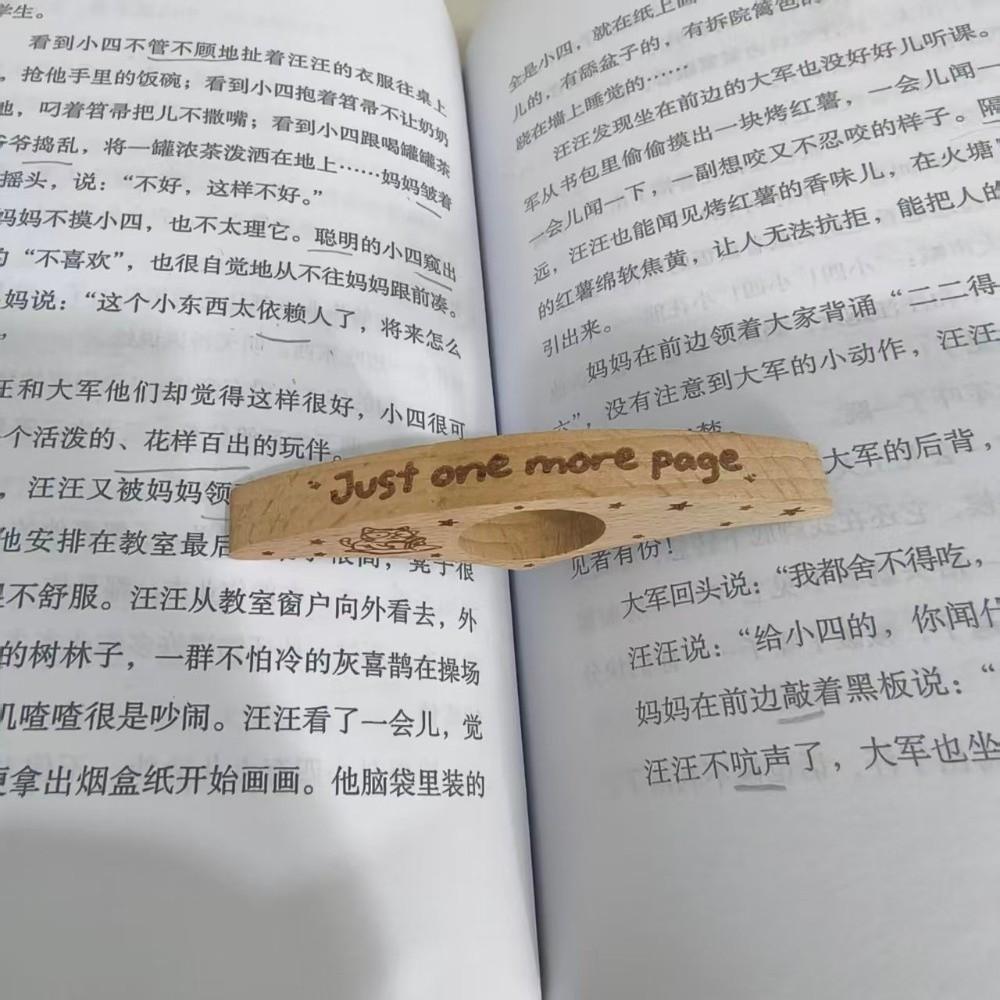 学生。
看到小四不管不顾地扯着汪汪的衣服往桌上
，抢他手里的饭碗；看到小四抱着笤帚不让奶奶
地，叼着笤帚把儿不撒嘴；看到小四跟喝罐罐茶
爷捣乱，将一罐浓茶泼洒在地上……妈妈皱着
摇头，说：“不好，这样不好。”
妈妈不摸小四，也不太理它。聪明的小四窥出
“不喜欢”，也很自觉地从不往妈妈跟前凑。
妈说：“这个小东西太依赖人了，将来怎么
”
汪和大军他们却觉得这样很好，小四很可
个活泼的、花样百出的玩伴。
，汪汪又被妈妈领
他安排在教室最后 很高，凳子很
不舒服。汪汪从教室窗户向外看去，外
的树林子，一群不怕冷的灰喜鹊在操场
叽喳喳很是吵闹。汪汪看了一会儿，觉
便拿出烟盒纸开始画画。他脑袋里装的
Just one more page
全是小四，就在纸上画
儿的，有舔盆子的，有拆院篱笆的
跷在墙上睡觉的……
汪汪发现坐在前边的大军也没好好儿听课。
军从书包里偷偷摸出一块烤红薯，一会儿闻一
一会儿闻一下，一副想咬又不忍咬的样子。隔
远，汪汪也能闻见烤红薯的香味儿，在火塘
的红薯绵软焦黄，让人无法抗拒，能把人的
引出来。
妈妈在前边领着大家背诵“一二得
”，没有注意到大军的小动作，汪汪
大军的后背，
见者有份！
大军回头说：“我都舍不得吃，
汪汪说：“给小四的，你闻什
妈妈在前边敲着黑板说：“
汪汪不吭声了，大军也坐